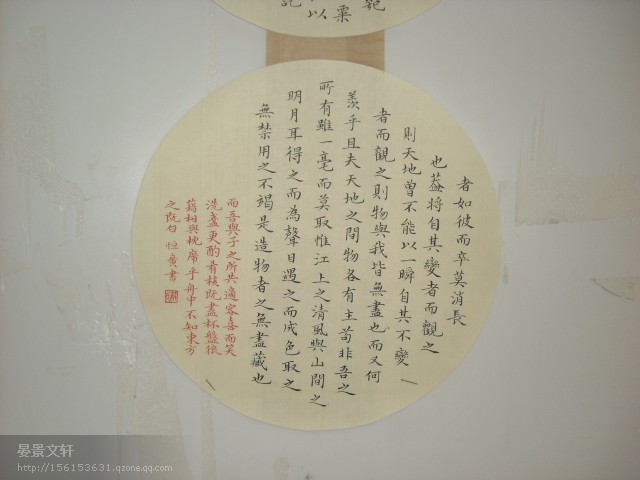 粟
以
者如彼而卒莫消長
也蓋將自其變者而觀之
則天地曾不能以一瞬自其不變
者而觀之則物與我皆無盡也而又何
羨乎且夫天地之間物各有主苟非吾之
所有雖一毫而莫取惟江上之清風與山間之
明月耳得之而為聲目遇之而成色取之
無禁用之不褐是造物者之無盡藏也
而吾與子之所共適客喜而笑
洗盞更酌肴核既盡杯盤狼
藉相與枕席乎舟中不知東方
之既白 恒廣書
晏景文轩
http://156153631.qzone.qq.com